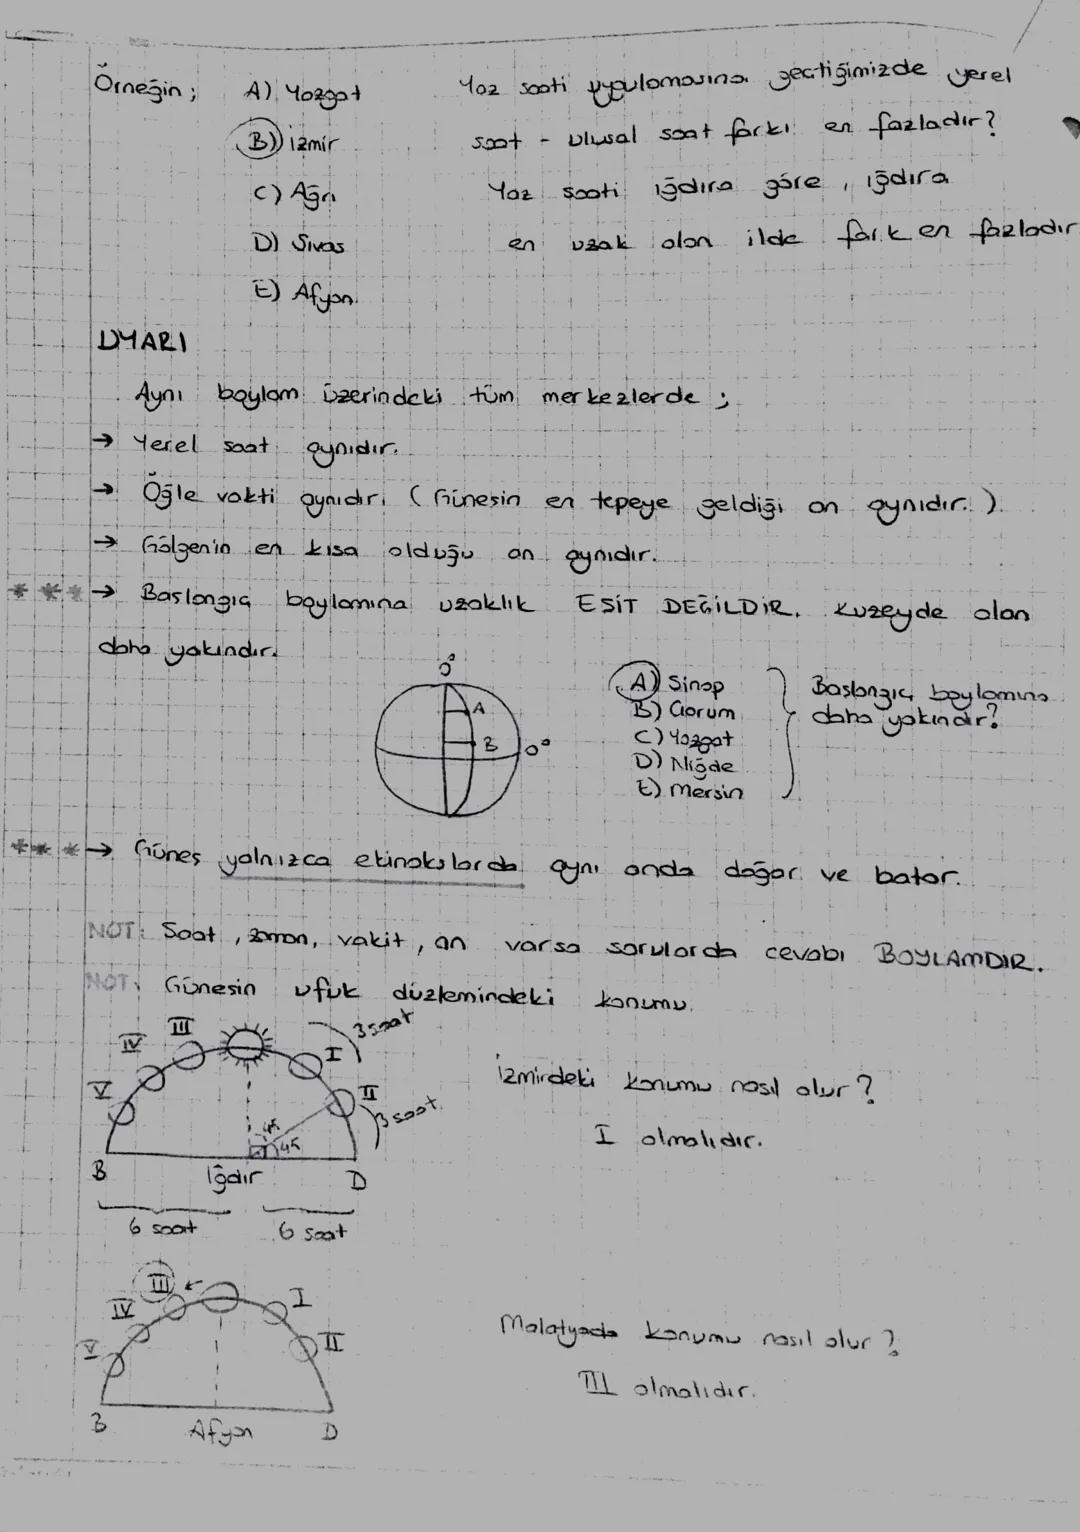 Örneğin;   A) Yozgat   Yaz saati uygulamasına geçtiğimizde yerel
B) İzmir   saat - ulusal saat farkı en fazladır?
C) Ağrı   Yaz saati ığdıra göre, ığdıra
D) Sivas   en uzak olan ilde fark en fazladır
E) Afyon.
UYARI
Aynı boylam üzerindeki tüm merkezlerde ;
→ Yerel saat aynıdır.
→ Öğle vakti aynıdır. (Güneşin en tepeye geldiği an aynıdır.)
→ Gölgenin en kısa olduğu an aynıdır.
*** → Başlangıç boylamına uzaklık EŞİT DEĞİLDİR. Kuzeyde olan
daha yakındır.
0°
A
B   0°
A) Sinop   Başlangıç boylamına
B) Çorum   daha yakındır?
C) Yozgat
D) Niğde
E) Mersin
*** → Güneş yalnızca ekinokslarda aynı anda doğar ve batar.
NOT: Saat, zaman, vakit, an varsa sorularda cevabı BOYLAMDIR.
NOT: Güneşin ufuk düzlemindeki konumu.
V IV III I II
3 saat
3 saat
45
45
B Iğdır D
6 saat 6 saat
İzmirdeki konumu nasıl olur?
I olmalıdır.
V IV III ← I II
B Afyon D
Malatyada konumu nasıl olur?
III olmalıdır.